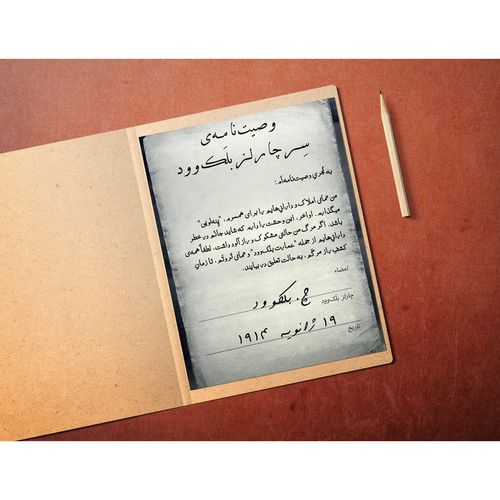 وصیت‌نامه‌ی
سِر چارلز بلَک‌وود
به مُجریِ وصیت‌نامه‌ام:
من تمامی املاک و دارایی‌هایم را برای همسرم، "پنه‌لوپی"
میگذارم. اواخر، این وحشت را دارم که شاید جانم در خطر
باشد. اگر مرگ من حالتی مشکوک و رازآلود داشت، لطفاً همه‌ی
دارایی‌هایم از جمله "عمارت بلک‌وود" و تمامی ثروتم، تا زمانِ
کشفِ رازِ مرگم، به حالت تعلیق در بیایند.
امضاء
چ. بلکوود
چارلز بلک‌وود
۱۹ ژانویه ۱۹۱۴
تاریخ